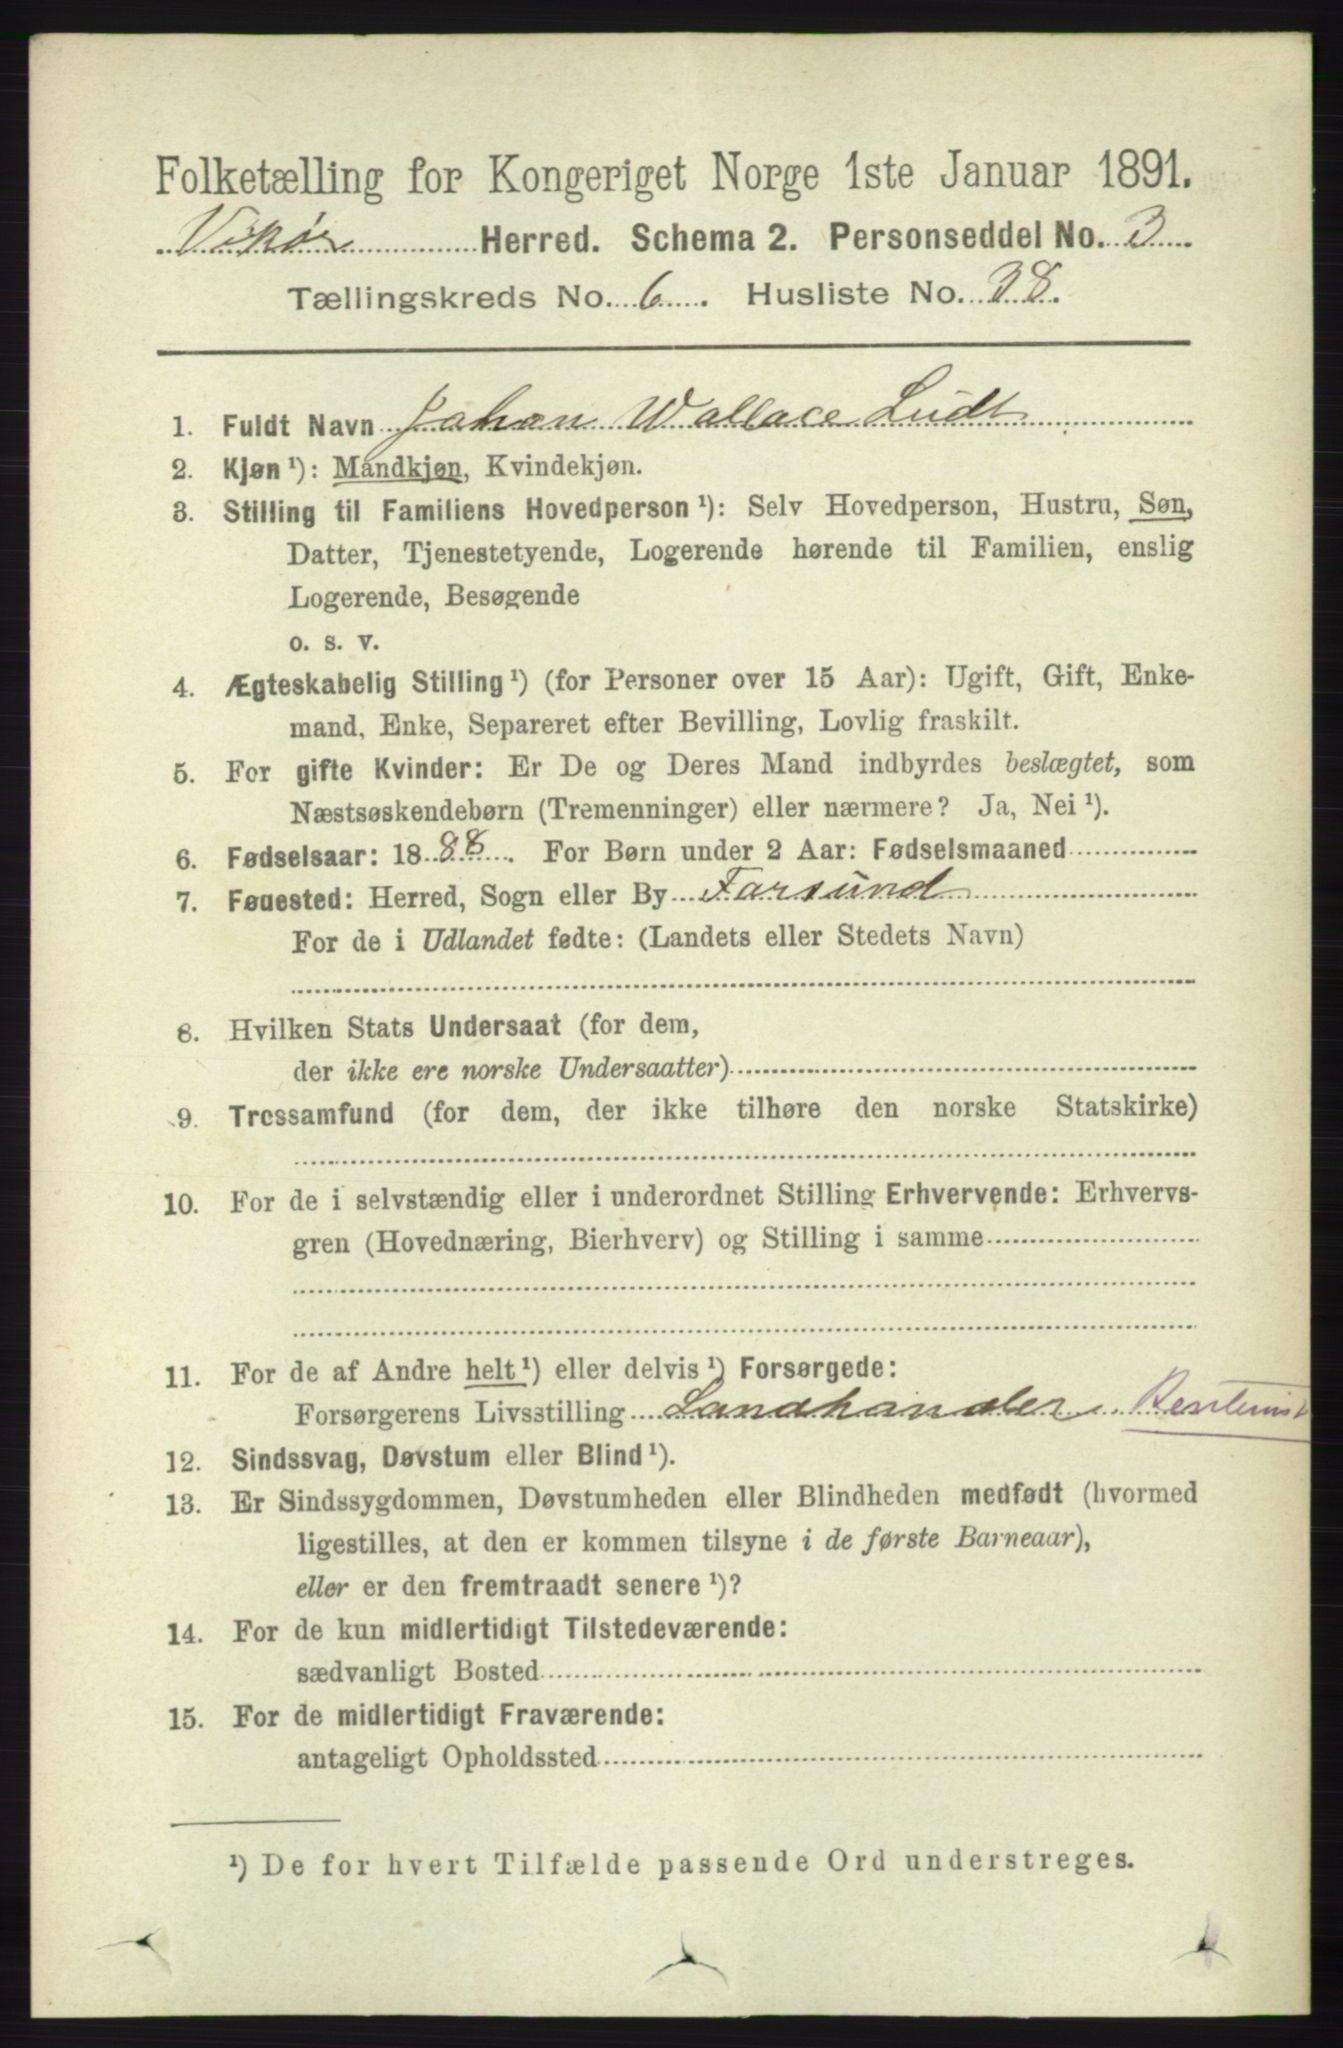 Folketælling for Kongeriget Norge 1ste Januar 1891.
Vikør Herred. Schema 2. Personseddel No. 3
Tællingskreds No. 6. Husliste No. 38.
1. Fuldt Navn Johan Wallace Lüdt
2. Kjøn ¹): Mandkjøn, Kvindekjøn.
3. Stilling til Familiens Hovedperson ¹): Selv Hovedperson, Hustru, Søn,
Datter, Tjenestetyende, Logerende hørende til Familien, enslig
Logerende, Besøgende
o. s. v.
4. Ægteskabelig Stilling ¹) (for Personer over 15 Aar): Ugift, Gift, Enke-
mand, Enke, Separeret efter Bevilling, Lovlig fraskilt.
5. For gifte Kvinder: Er De og Deres Mand indbyrdes beslægtet, som
Næstsøskendebørn (Tremenninger) eller nærmere? Ja, Nei ¹).
6. Fødselsaar: 1888. For Børn under 2 Aar: Fødselsmaaned
7. Føuested: Herred, Sogn eller By Farsund
For de i Udlandet fødte: (Landets eller Stedets Navn)
8. Hvilken Stats Undersaat (for dem,
der ikke ere norske Undersaatter)
9. Trossamfund (for dem, der ikke tilhøre den norske Statskirke)
10. For de i selvstændig eller i underordnet Stilling Erhvervende: Erhvervs-
gren (Hovednæring, Bierhverv) og Stilling i samme
11. For de af Andre helt ¹) eller delvis ¹) Forsørgede:
Forsørgerens Livsstilling Landhandler
12. Sindssvag, Døvstum eller Blind ¹).
13. Er Sindssygdommen, Døvstumheden eller Blindheden medfødt (hvormed
ligestilles, at den er kommen tilsyne i de første Barneaar),
eller er den fremtraadt senere ¹)?
14. For de kun midlertidigt Tilstedeværende:
sædvanligt Bosted
15. For de midlertidigt Fraværende:
antageligt Opholdssted
¹) De for hvert Tilfælde passende Ord understreges.